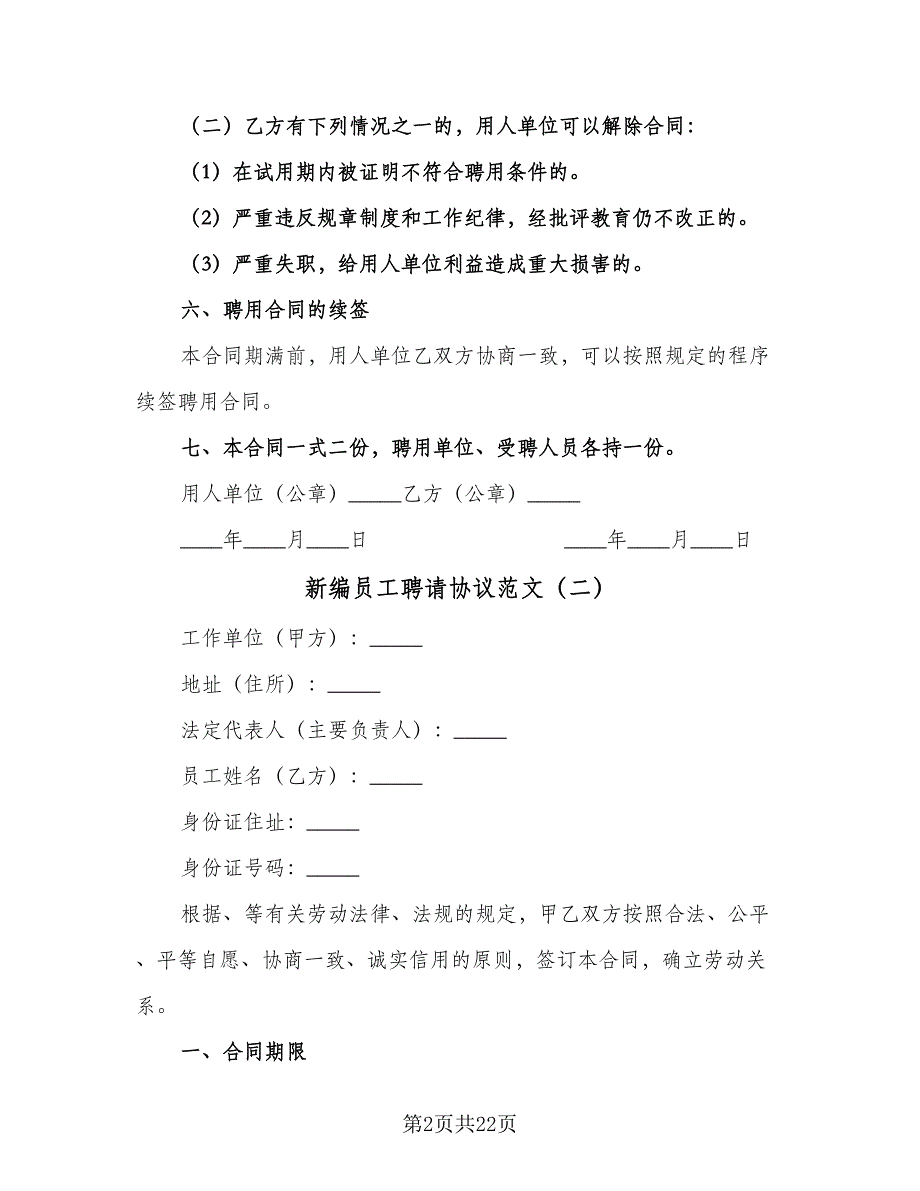 （二）乙方有下列情况之一的，用人单位可以解除合同：
（1）在试用期内被证明不符合聘用条件的。
（2）严重违反规章制度和工作纪律，经批评教育仍不改正的。
（3）严重失职，给用人单位利益造成重大损害的。
六、聘用合同的续签
本合同期满前，用人单位乙双方协商一致，可以按照规定的程序
续签聘用合同。
七、本合同一式二份，聘用单位、受聘人员各持一份。
用人单位（公章）_____乙方（公章）_____
____年____月____日 ____年____月____日
新编员工聘请协议范文（二）
工作单位（甲方）：_____
地址（住所）：_____
法定代表人（主要负责人）：_____
员工姓名（乙方）：_____
身份证住址：_____
身份证号码：_____
根据、等有关劳动法律、法规的规定，甲乙双方按照合法、公平
、平等自愿、协商一致、诚实信用的原则，签订本合同，确立劳动关
系。
一、合同期限
第2页共22页